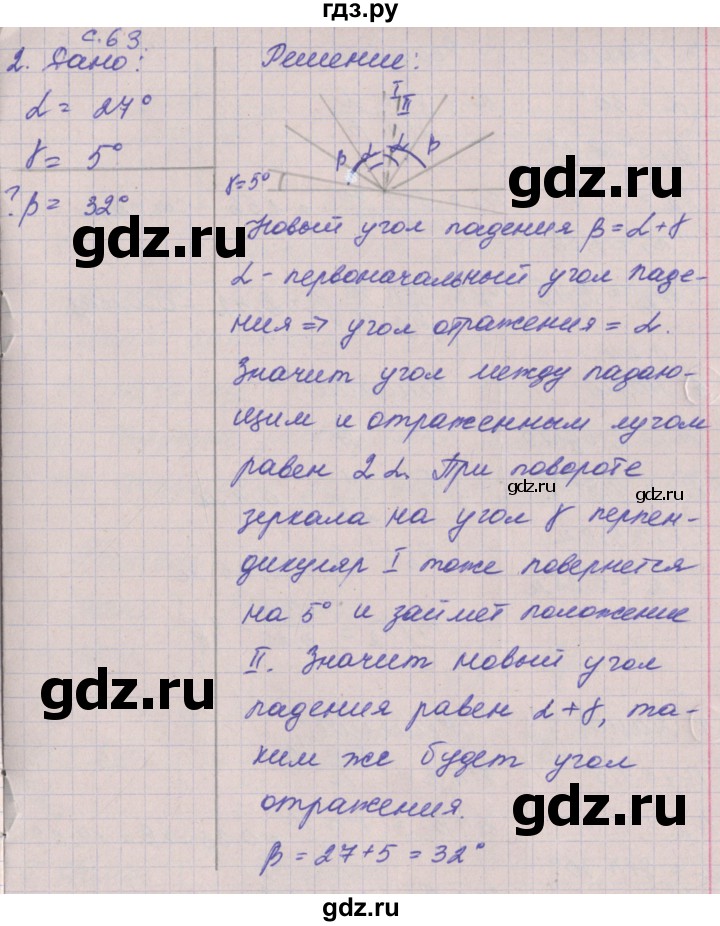 гдз.ру
с.63.
2. Дано:
α = 27°
γ = 5°
? β = 32°
Решение:
I
II
β α α β
γ=5°
gdz.ru
Новый угол падения β=α+γ
gdz.ru
α - первоначальный угол паде-
ния => угол отражения = α.
Значит угол между падаю-
щим и отраженным лучом
равен 2α. При повороте
gdz.ru
gdz.ru
зеркала на угол γ перпен-
дикуляр I тоже повернется
на 5° и займет положение
II. Значит новый угол
gdz.ru
падения равен α+γ, та-
ким же будет угол
отражения.
gdz.ru
β = 27+5 = 32°
gdz.ru